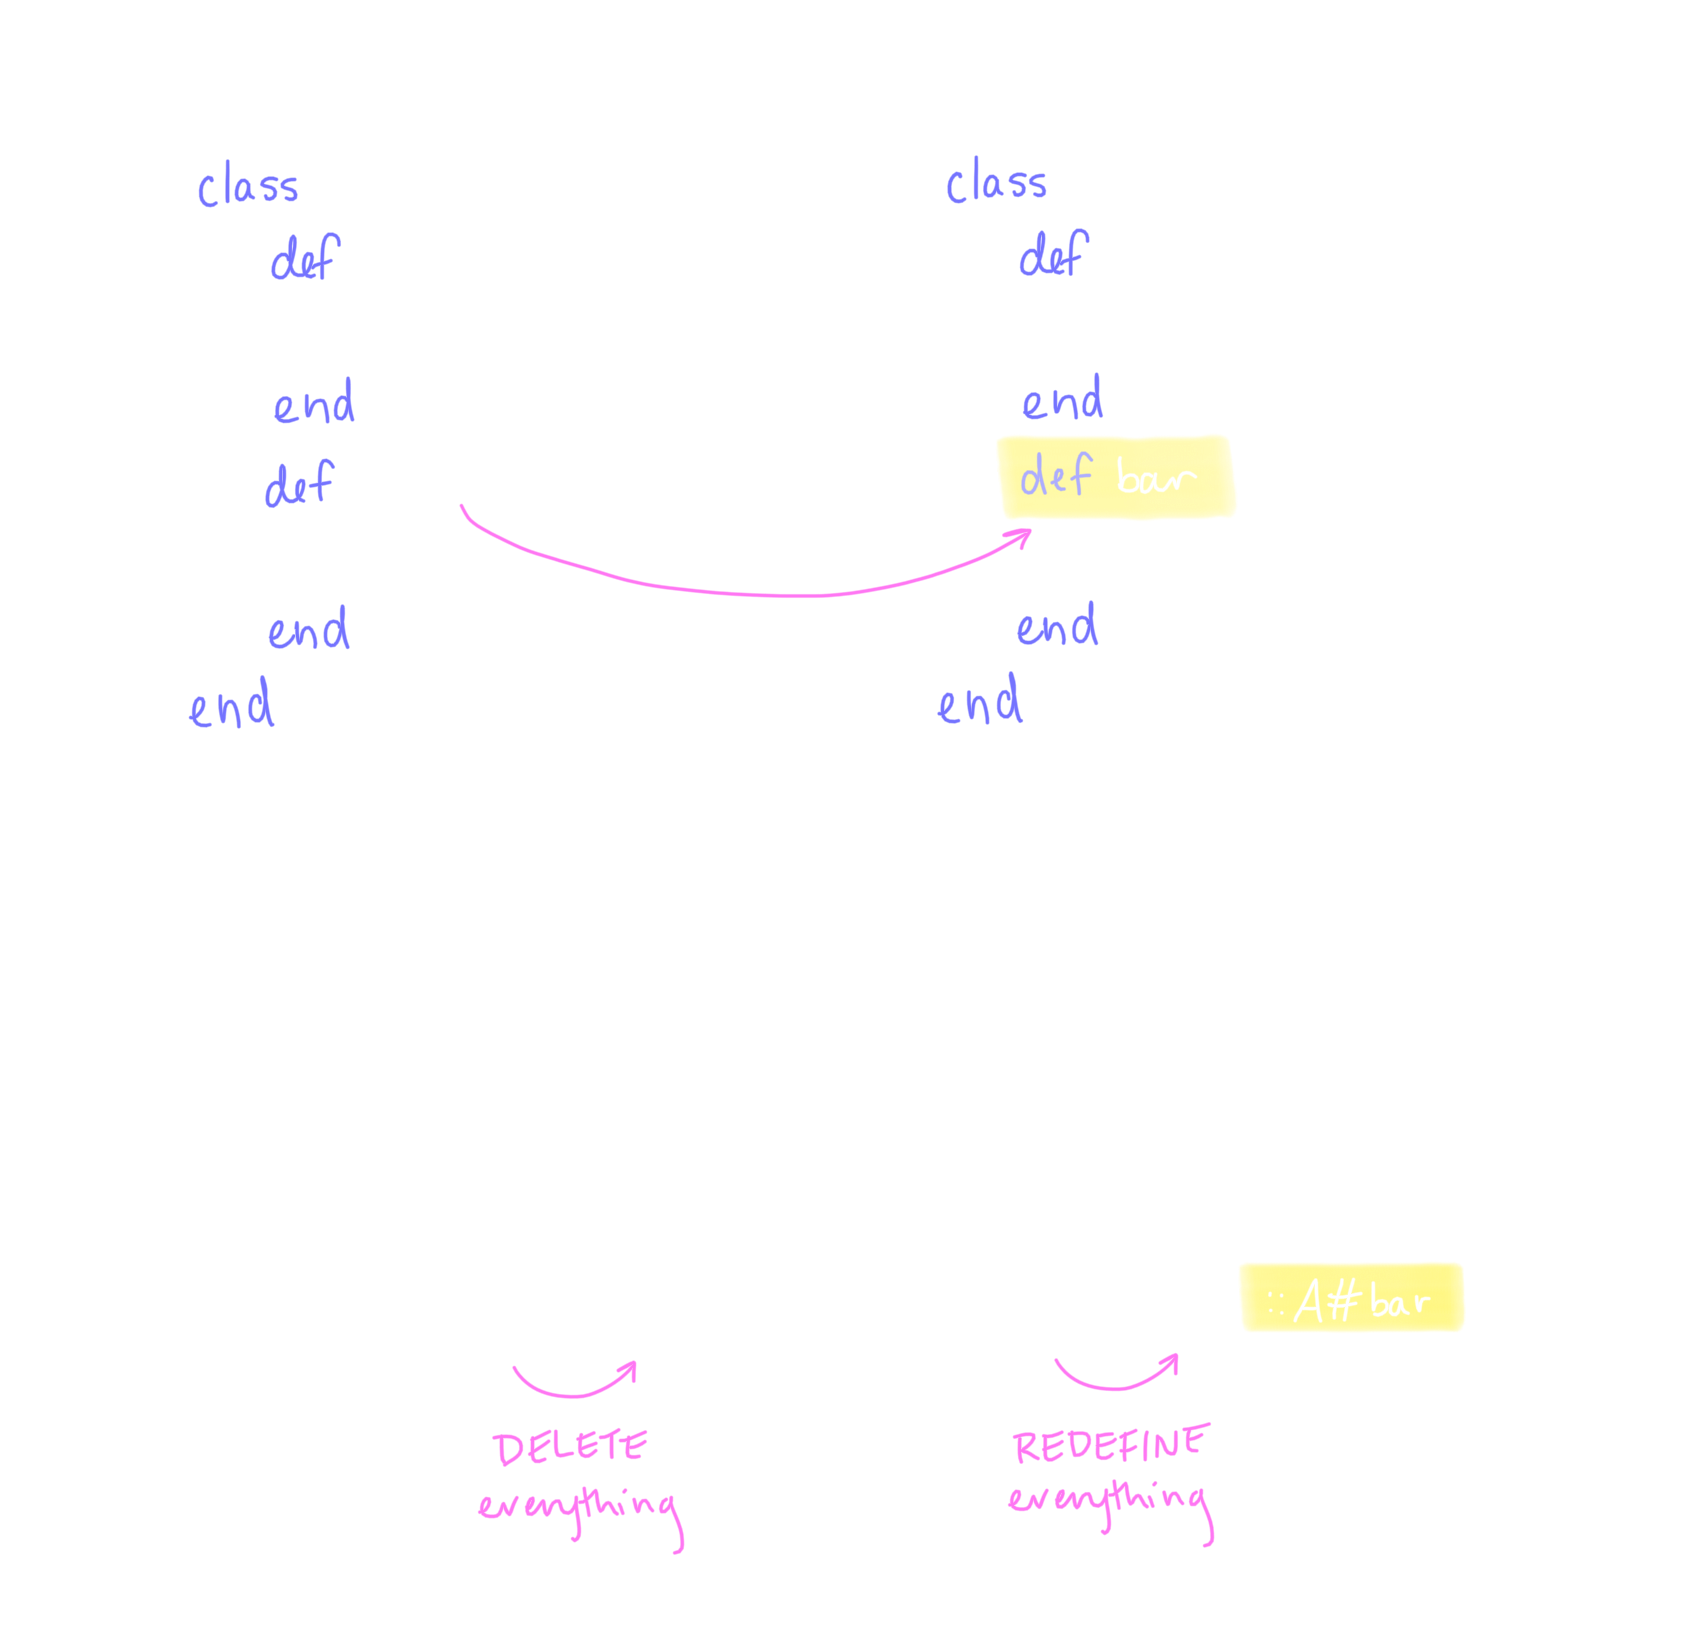 class
def
end
def
end
end
class
def
end
def bar
end
end
::A#bar
DELETE
everything
REDEFINE
everything